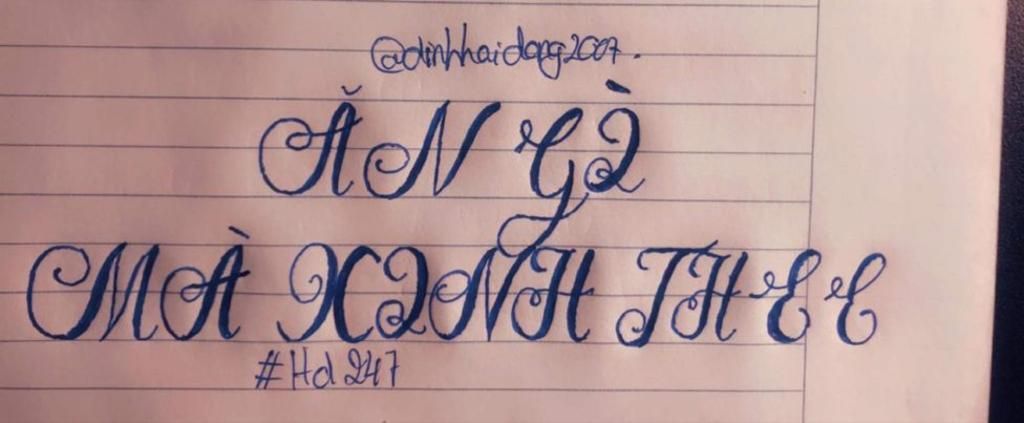 @dinhhaidang2007.
ĂN GÌ
MÀ XINH THEE
#Hd247